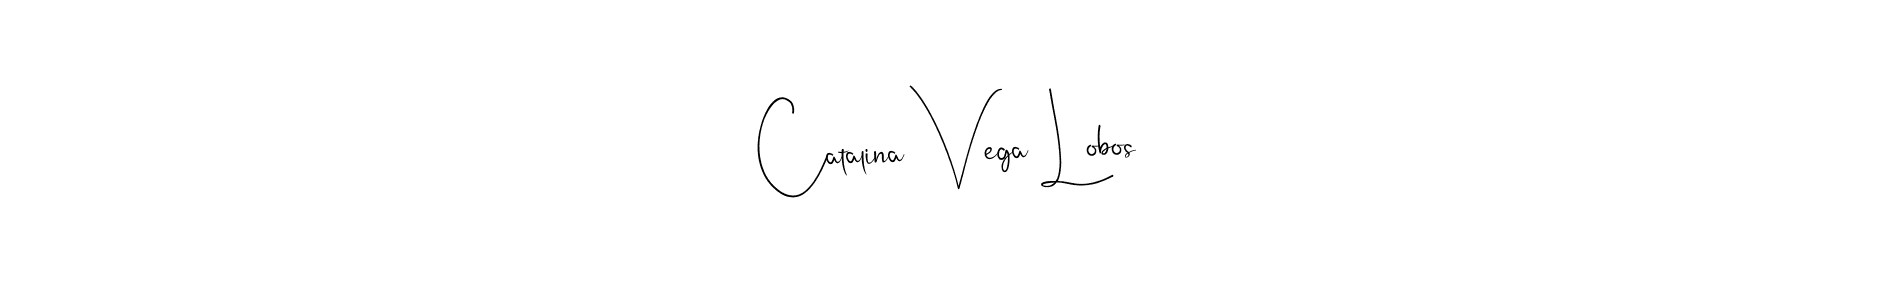 Catalina Vega Lobos